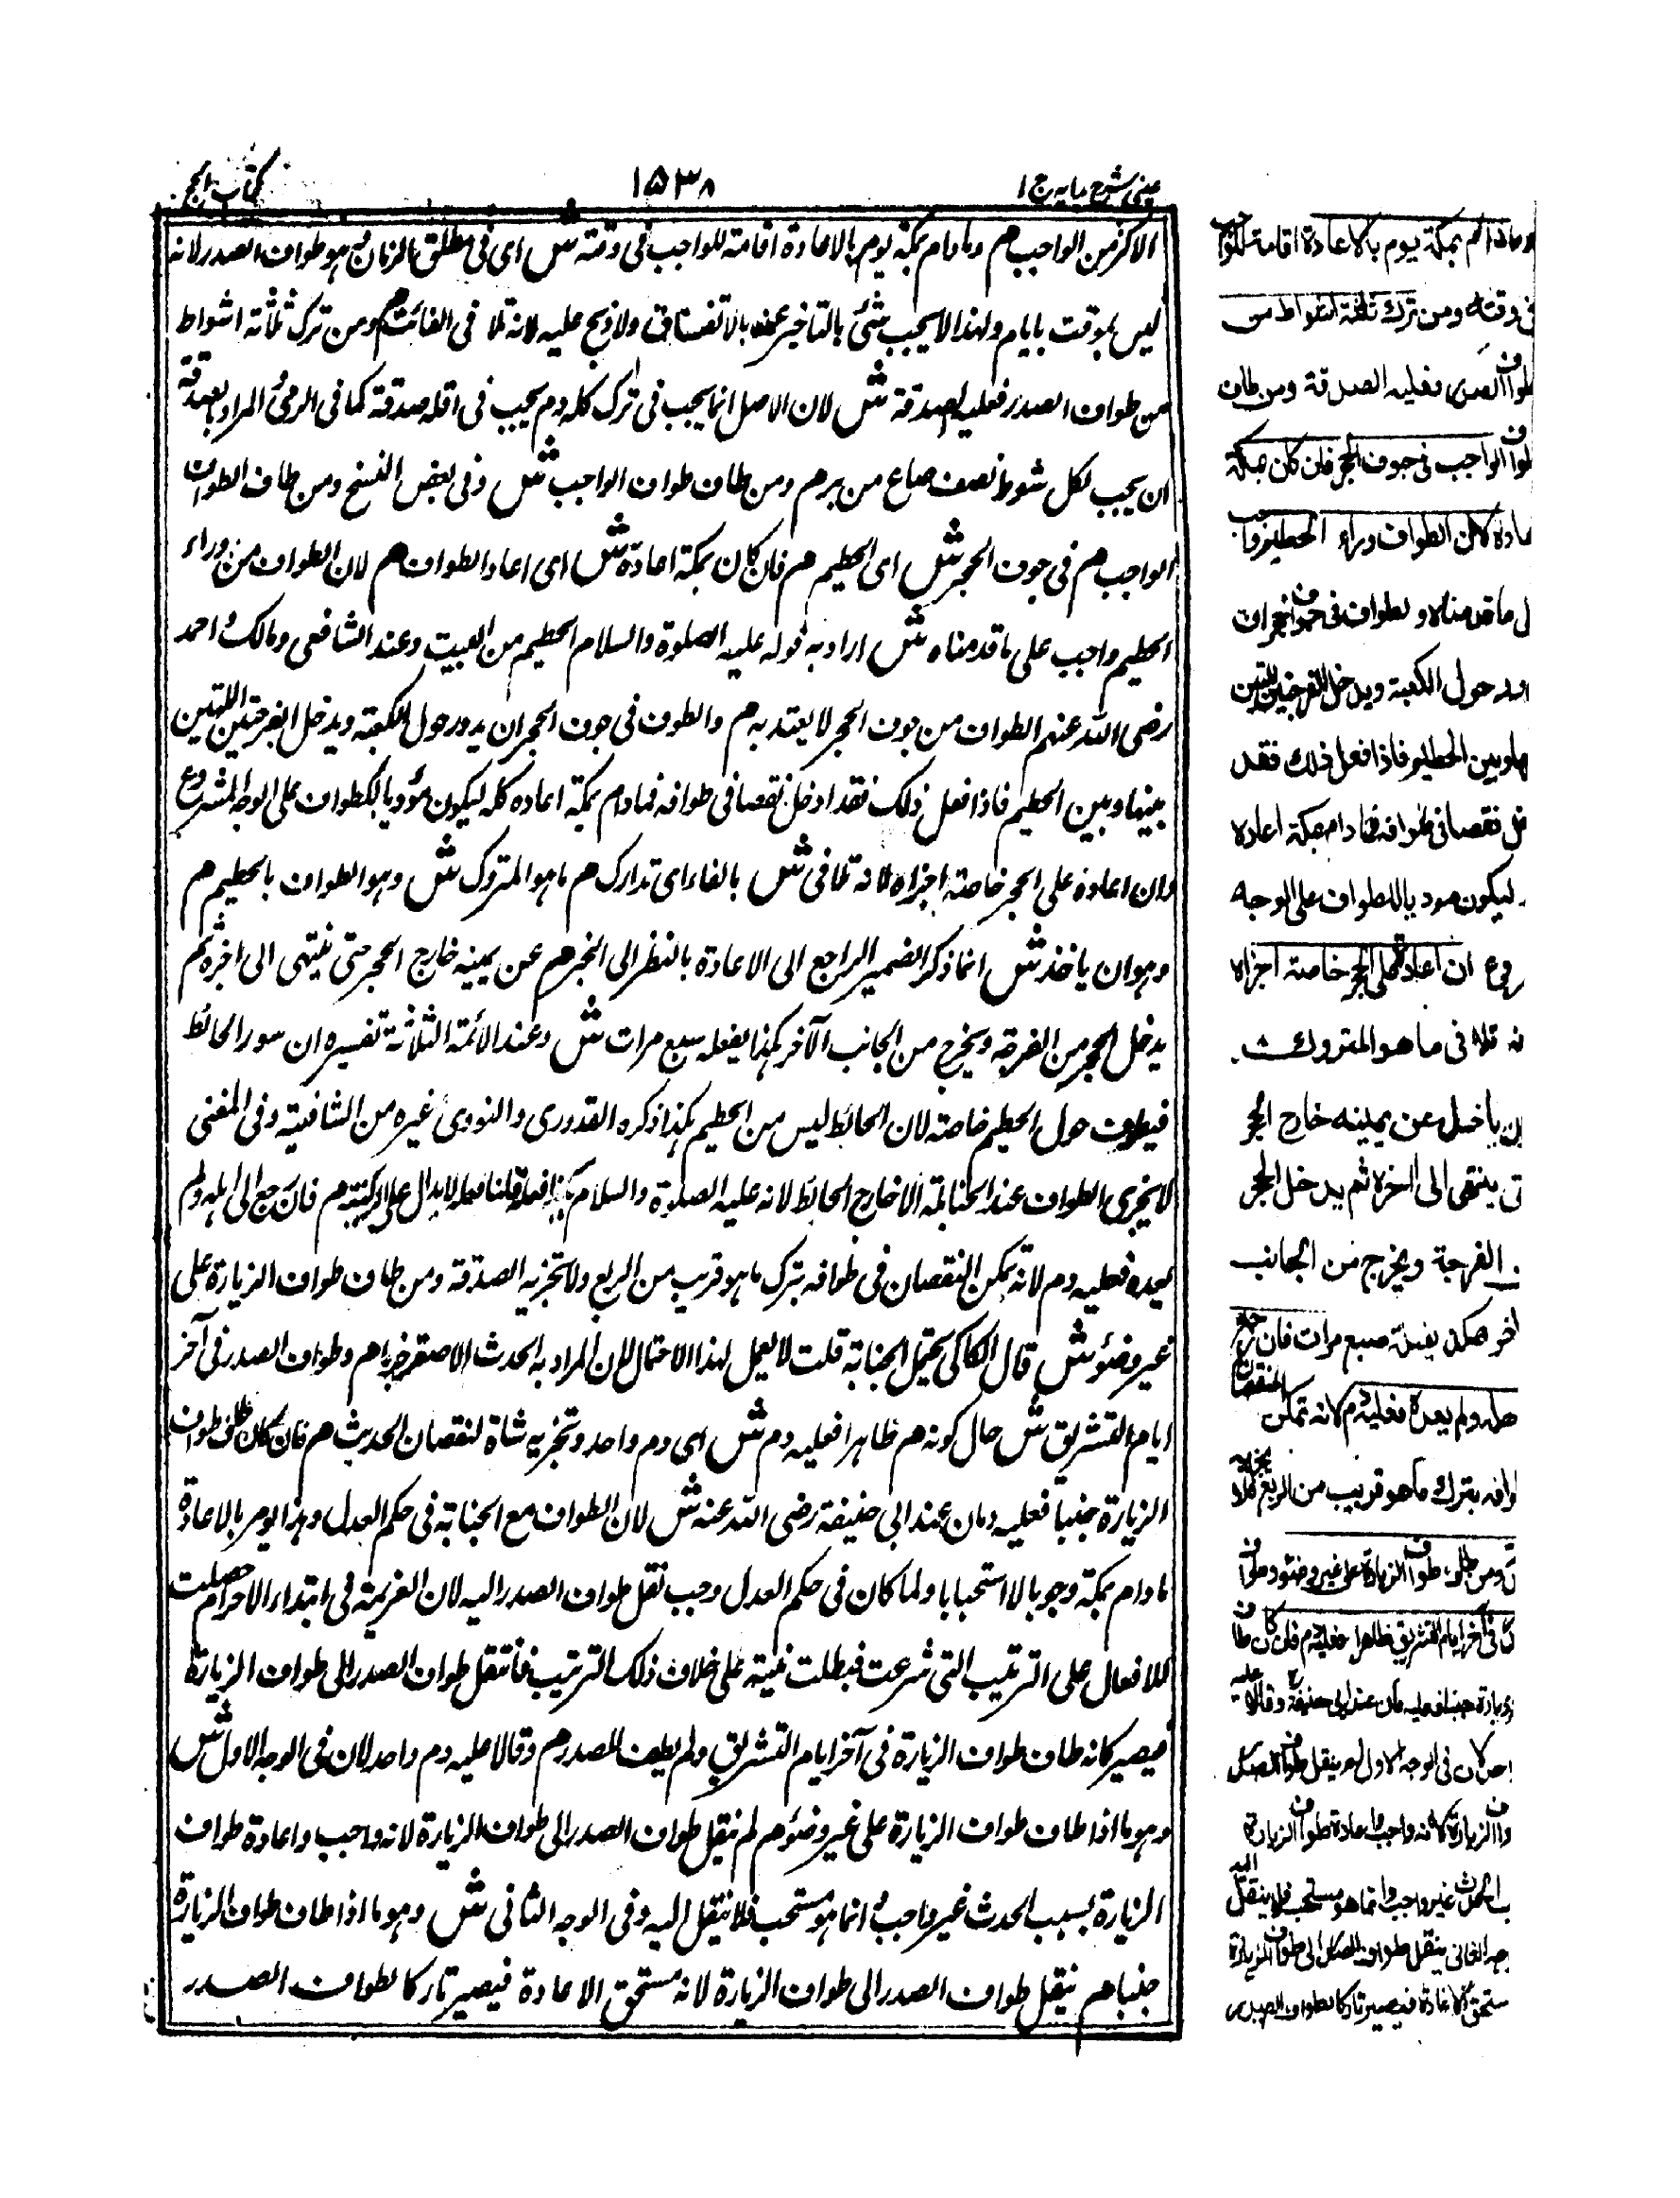 عینی شرح ہدایہ ج ۱
۱۵۳۸
کتاب الحج
الاكثر من الواجب هم وما دام بمكة يومر بالاعادة اقامة للواجب في وقته ش اى فى مطلق الزمان هو طواف الصدر لانه
ليس بموقت بايام ولهذا لا يجب شئ بالتاخير عنه بالاتفاق ولا ذبح عليه لانه تلا فى الفائت هم ومن ترك ثلثة اشواط
من طواف الصدر فعليه الصدقة ش لان الاصل انما يجب فى ترك كله دم يجب فى اقله صدقة كما فى الرمى المراد بالصدقة
ان يجب لكل شوط نصف صاع من بر هم ومن طاف طواف الواجب ش وفى بعض النسخ ومن طاف الطواف
الواجب هم فى جوف الحجر ش اى الحطيم هم فان كان بمكة اعاده ش اى اعاد الطواف هم لان الطواف من وراء
الحطيم واجب على ما قدمناه ش اراد به قوله عليه الصلوة والسلام الحطيم من البيت وعند الشافعى ومالك احمد
رضى الله عنهم الطواف من جوف الحجر لا يعتد به هم والطوف فى جوف الحجر ان يدور حول الكعبة ويدخل الفرجتين اللتين
بينها وبين الحطيم فاذا فعل ذلك فقد ادخل نقصا فى طوافه فما دام بمكة اعاده كله ليكون مؤديا للطواف على الوجه المشروع
وان اعاده على الحجر خاصة اجزاه لانه تلافى ش بالفاء اى تدارك هم ما هو المتروك ش وهو الطواف بالحطيم هم
وهو ان ياخذ ش انما ذكر الضمير الراجع الى الاعادة بالنظر الى الخبر هم عن يمينه خارج الحجر حتى ينتهى الى اخره ثم
يدخل الحجر من الفرجة ويخرج من الجانب الآخر هكذا يفعله سبع مرات ش وعند الائمة الثلاثة تفسيره ان سور الحائط
فيطوف حول الحطيم خاصة لان الحائط ليس من الحطيم هكذا ذكره القدورى والنووى غيره من الشافعية وفى المغنى
لا يجزى الطواف عند الحنابلة الا خارج الحائط لانه عليه الصلوة والسلام هكذا فعله قلنا فعله لا يدل على الركنية هم فان رجع الى اهله ولم
يعده فعليه دم لانه تمكن النقصان فى طوافه بترك ما هو قريب من الربع ولا تجزيه الصدقة ومن طاف طواف الزيارة على
غير وضوء ش قال الكاكى يحتمل الجنابة قلت لا يعمل لهذا الاحتمال لان المراد به الحدث الاصغر جزما هم وطواف الصدر فى آخر
ايام التشريق ش حال كونه هم طاهرا فعليه دم ش اى دم واحد وتجزيه شاة لنقصان الحدث هم فان كان طاف طواف
الزيارة جنبا فعليه دمان عند ابى حنيفة رضى الله عنه ش لان الطواف مع الجنابة فى حكم العدل وبهذا يومر بالاعادة
ما دام بمكة وجوبا لا استحبابا ولما كان فى حكم العدل وجب نقل طواف الصدر اليه لان العزيمة فى ابتداء الاحرام حصلت
للافعال على الترتيب التى شرعت فبطلت نيته على خلاف ذلك الترتيب فانتقل طواف الصدر الى طواف الزيارة
فيصير كانه طاف طواف الزيارة فى آخر ايام التشريق ولم يطف للصدر هم وقالا عليه دم واحد لان فى الوجه الاول ش
وهو ما اذا طاف طواف الزيارة على غير وضوء هم لم ينقل طواف الصدر الى طواف الزيارة لانه واجب واعادة طواف
الزيارة بسبب الحدث غير واجب انما هو مستحب فلا ينقل اليه وفى الوجه الثانى ش وهو ما اذا طاف طواف الزيارة
جنبا هم ينقل طواف الصدر الى طواف الزيارة لانه مستحق الاعادة فيصير تاركا لطواف الصدر
وما دام بمكة يوم بالاعادة اقامة للواجب
فى وقته ومن ترك ثلثة اشواط من
طواف الصدر فعليه الصدقة ومن طاف
طواف الواجب فى جوف الحجر فان كان بمكة
اعاده لان الطواف وراء الحطيم واجب
ما قدمناه والطواف فى جوف الحجر ان
يدور حول الكعبة ويدخل الفرجتين اللتين
بينها وبين الحطيم فاذا فعل ذلك فقد
ادخل نقصا فى طوافه فما دام بمكة اعاده
ليكون موديا للطواف على الوجه
المشروع ان اعاده على الحجر خاصة اجزاه
لانه تلافى ما هو المتروك
ان ياخذ عن يمينه خارج الحجر
حتى ينتهى الى اخره ثم يدخل الحجر
الفرجة ويخرج من الجانب
الاخر هكذا يفعله سبع مرات فان رجع
اهله ولم يعده فعليه دم لانه تمكن النقصان
طوافه بترك ما هو قريب من الربع
ومن طاف طواف الزيارة على غير وضوء وطواف
فى آخر ايام التشريق طاهرا فعليه دم فان كان طاف
الزيارة جنبا فعليه دمان عند ابى حنيفة وقالا عليه
لان فى الوجه الاول لم ينقل طواف الصدر
طواف الزيارة لانه واجب واعادة طواف الزيارة
بالحدث غير واجب وانما هو مستحب فلا ينقل اليه
وجه الثانى ينقل طواف الصدر الى طواف الزيارة
مستحق الاعادة فيصير تاركا لطواف الصدر